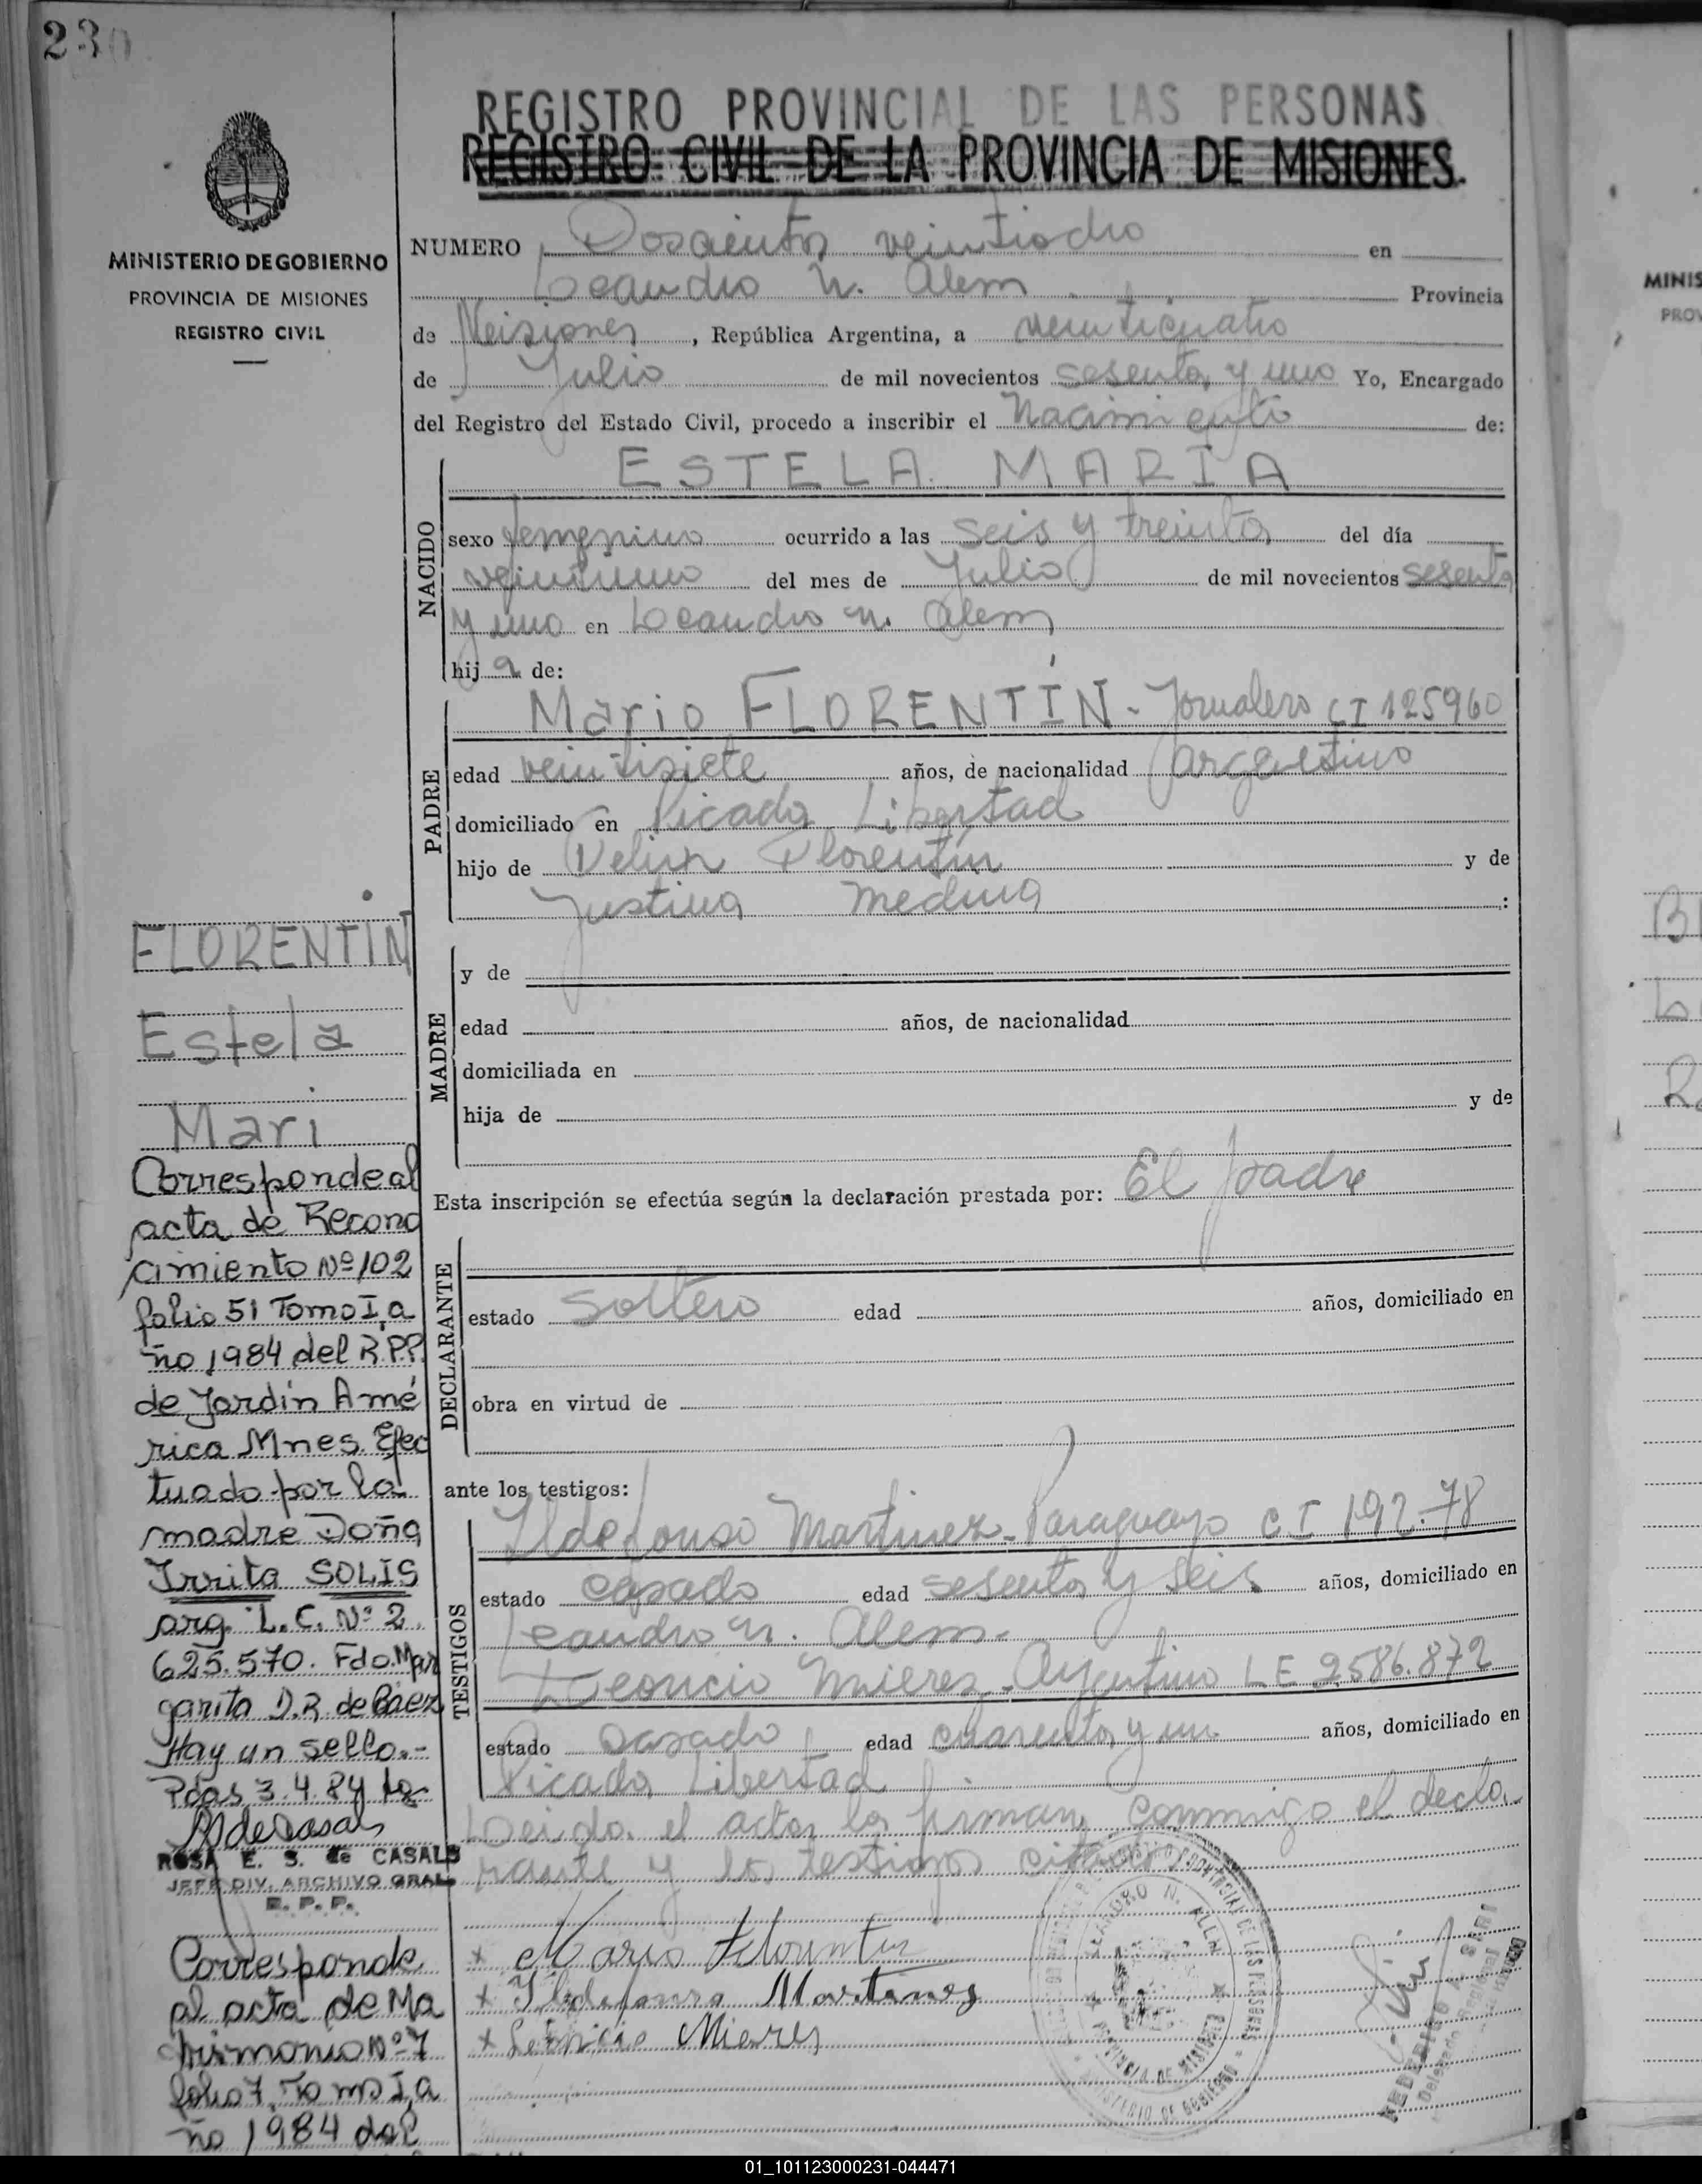 230
MINISTERIO DE GOBIERNO
PROVINCIA DE MISIONES
REGISTRO CIVIL
REGISTRO PROVINCIAL DE LAS PERSONAS
REGISTRO CIVIL DE LA PROVINCIA DE MISIONES.
NUMERO Doscientos veintiocho en
Leandro N. Alem Provincia
de Misiones, República Argentina, a veinticuatro
de Julio de mil novecientos sesenta y uno Yo, Encargado
del Registro del Estado Civil, procedo a inscribir el Nacimiento de:
NACIDO
ESTELA MARIA
sexo femenino ocurrido a las seis y treinta del día
veintiuno del mes de Julio de mil novecientos sesenta
y uno en Leandro N. Alem
hija de:
PADRE
Mario FLORENTÍN - Jornalero CI 125960
edad veintisiete años, de nacionalidad argentino
domiciliado en Picada Libertad
hijo de Florentín y de
Justina Medina :
MADRE
y de
edad años, de nacionalidad
domiciliada en
hija de y de
Esta inscripción se efectúa según la declaración prestada por: El padre
DECLARANTE
estado soltero edad años, domiciliado en
obra en virtud de
ante los testigos:
TESTIGOS
Ildefonso Martinez - Paraguayo CI 192.78
estado casado edad sesenta y seis años, domiciliado en
Leandro N. Alem.
Leoncio Mierez - Argentino LE 2586.872
estado casado edad cuarenta y un años, domiciliado en
Picada Libertad
Leida el acta la firman conmigo el decla
rante y los testigos citados
x Mario Florentin
x Ildefonso Martines
x Leoncio Mieres
FLORENTIN
Estela
Mari
Corresponde al
acta de Recono
cimiento Nº 102
folio 51 Tomo I, a
ño 1984 del R.P.P.
de Jardín Amé
rica Mnes. Efec
tuado por la
madre Doña
Irrita SOLIS
arg. L.C. Nº 2.
625.570. Fdo. Mar
garita D.R. de Báez
Hay un sello.-
Pdas, 3.4.84
ROSA E. S. de CASALS
JEFE DIV. ARCHIVO GRAL.
R. P. P.
Corresponde
al acta de Ma
trimonio Nº 7
folio 7, Tomo I, a
ño 1984 del
LEANDRO N. ALEM
PROVINCIA DE MISIONES
MINISTERIO DE GOBIERNO
MINIS
PROV
01_101123000231-044471